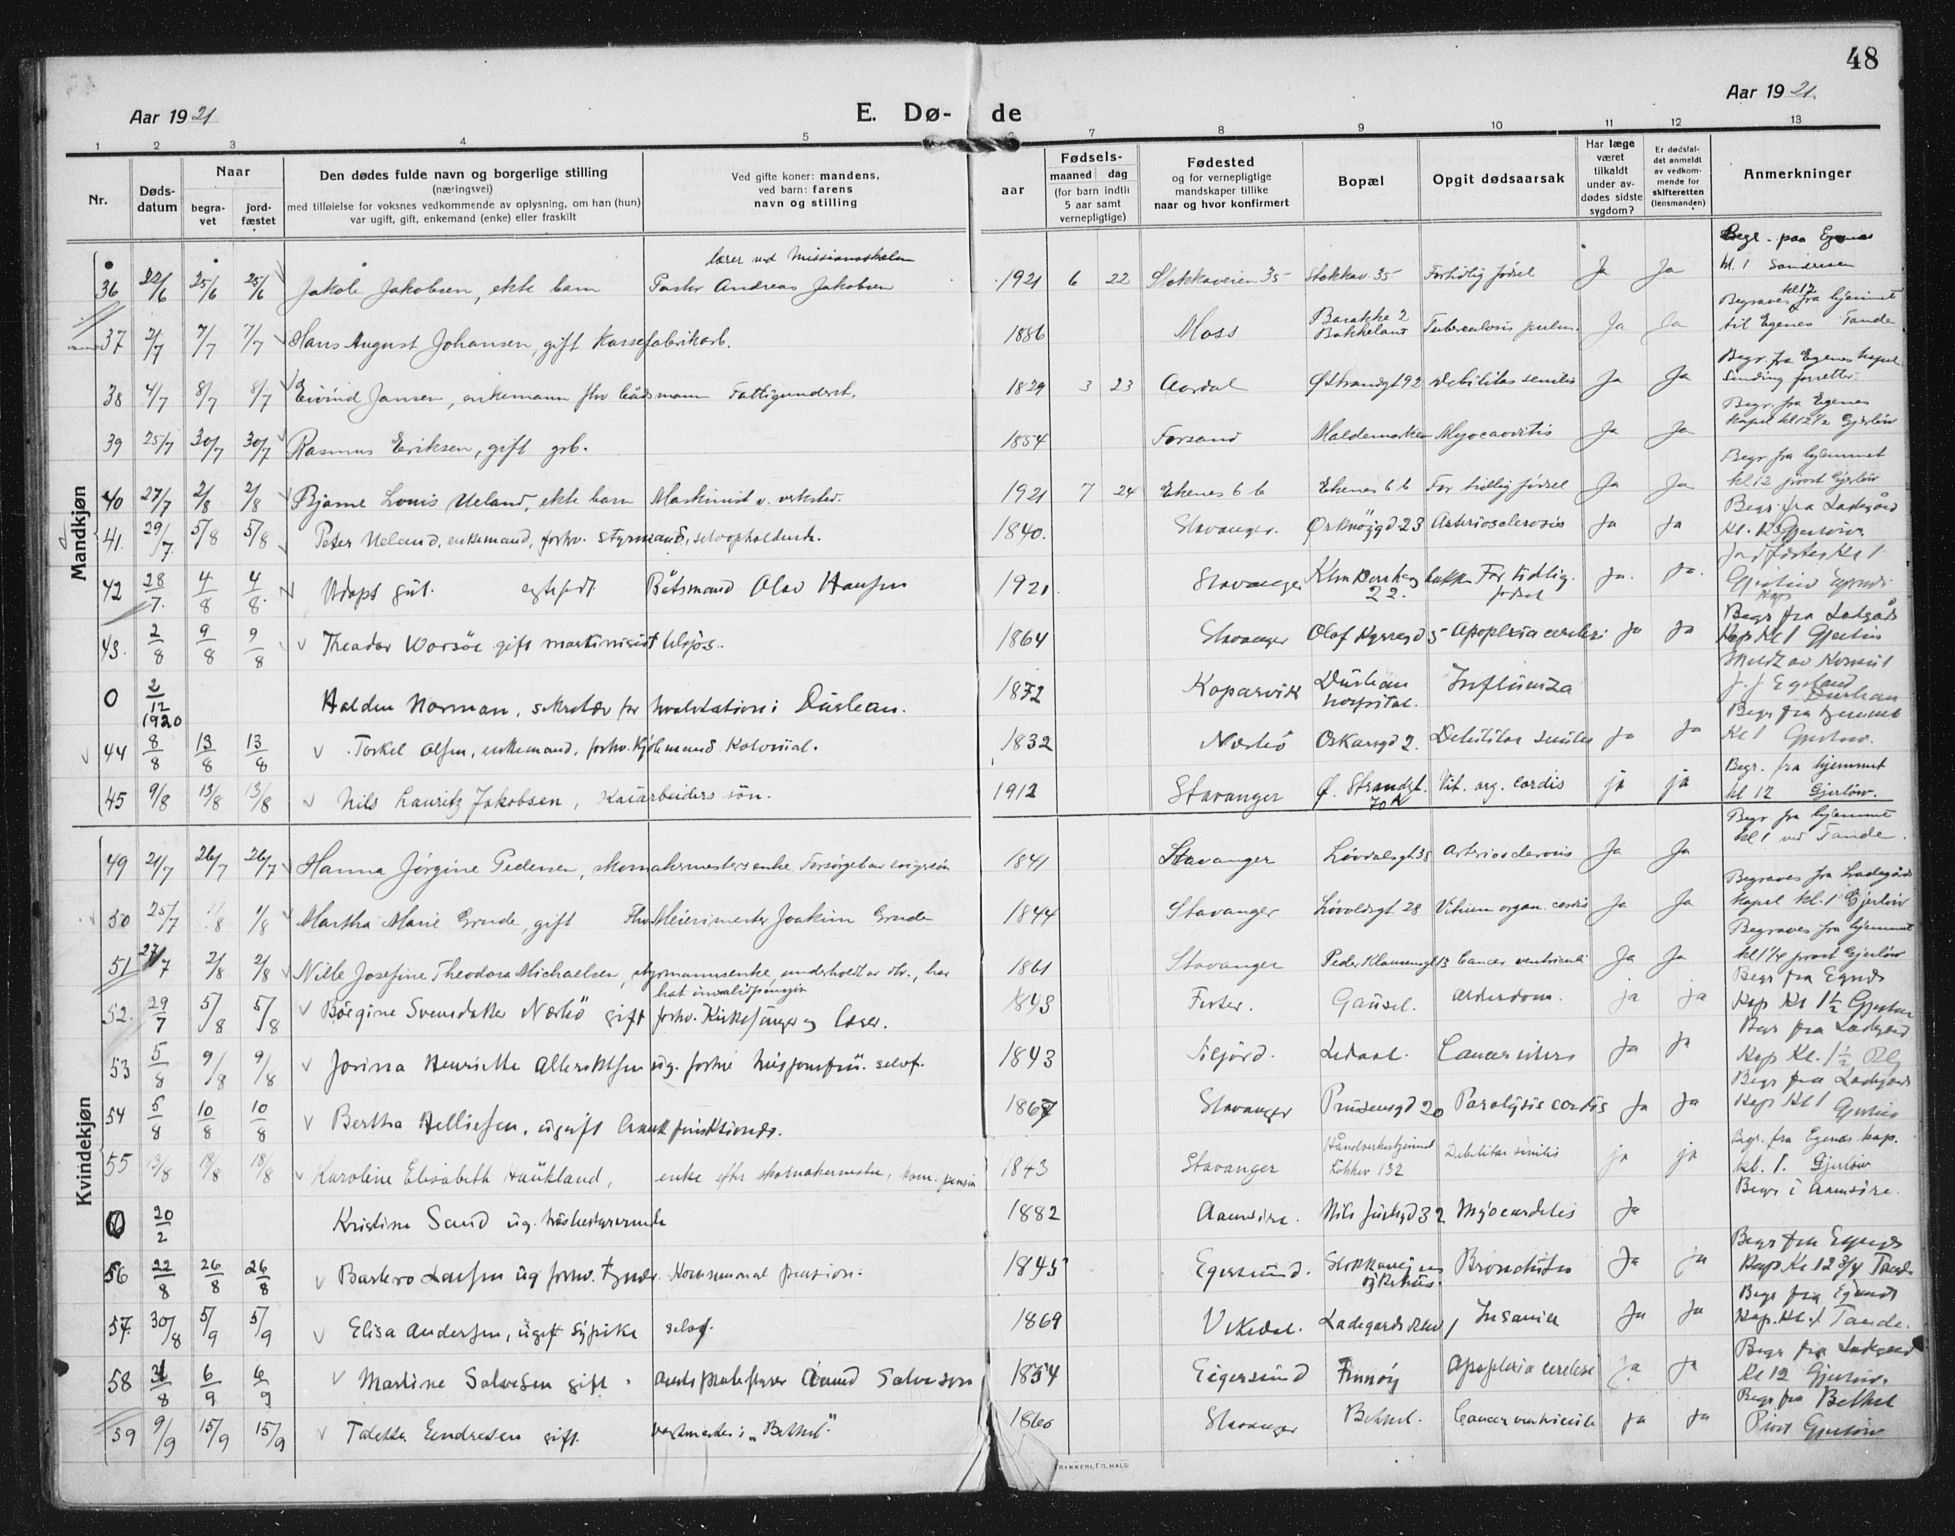 48
Aar 1921
E. Dø-de
Aar 1921.
1 2 3 4 5 6 7 8 9 10 11 12 13
Nr.
Døds-datum
Naar
begra-vet
jord-fæstet
Den dødes fulde navn og borgerlige stilling
(næringsvei)
med tilføielse for voksnes vedkommende av oplysning, om han (hun)
var ugift, gift, enkemand (enke) eller fraskilt
Ved gifte koner: mandens,
ved barn: farens
navn og stilling
aar
Fødsels-
maaned dag
(for barn indtil
5 aar samt
vernepligtige)
Fødested
og for vernepligtige
mandskaper tillike
naar og hvor konfirmert
Bopæl
Opgit dødsaarsak
Har læge
været
tilkaldt
under av-
dødes sidste
sygdom?
Er dødsfal-
det anmeldt
av vedkom-
mende for
skifteretten
(lensmanden)
Anmerkninger
Mandkjøn
lærer ved Missionsskolen
Begr. paa Egenes
36 22/6 25/6 25/6 Jakob Jakobsen, ekte barn Pastor Andreas Jakobsen 1921 6 22 Stokkaveien 35 Stokkav. 35 Fortidlig fødsel Ja Ja kl. 1
Begraves fra hjemmet kl 12
37 2/7 7/7 7/7 Hans August Johansen, gift Kassefabrikarb. 1886 Moss Barakke 2 Bakkeland Tuberculosis pulm. Ja Ja til Egenes Tande
Begr. fra Egenes kapel
38 4/7 8/7 8/7 Eivind Jansen, enkemann fhv baadsmann Fattigunderst. 1829 3 23 Aardal Ø Strandgt 92 Debilitas senilis Ja Ja Sinding forretter
Begr. fra Egenes
39 25/7 30/7 30/7 Rasmus Eriksen, gift grb. 1854 Forsand Maldemarken Myocarditis Ja Ja kapel kl 12 1/2 Gjerløw
Begr fra hjemmet
40 27/7 2/8 2/8 Bjarne Louis Ueland, ekte barn Maskinist v. verksted. 1921 7 24 Ekenes 6 b Ekenes 6 b For tidlig fødsel Ja Ja kl 12 prost Gjerløw
Begr. fra Ladegård
41. 29/7 5/8 5/8 Peter Ueland, enkemand, forhv. styrmand, selvopholdende. 1840. Stavanger. Ørknöygd 23 Arteriosclerosis Ja Ja
Jordfæstes Kl 1
42 28/7. 4/8 4/8. Udöpt gut. egtefødt Båtsmand Olav Hansen 1921 Stavanger 22. For tidlig fodsel Ja. Ja.
Begr fra Ladegårds
43. 2/8 9/8 9/8 Theodor Worsöe gift maskinist tilsjøs. 1864 Stavanger Olaf Kyrresgd 5 Apoplexia cerebri Ja Ja Kap Kl 1 Gjerløw
Meldt av Konsul
0 2/12 1920 Halden Norman, sekretær for hvalstation i Durban. 1872 Kopervik Durban hospital. Influenza J. J Egeland Durban
Begr fra hjemmet
44 8/8 13/8 13/8 Torkel Olsen, enkemand, forhv. Kjøbmand Kolonial. 1832 Nærbö Oskarsgd 2. Debilitas senilis Ja Ja Kl 1 Gjerløw.
Begr. fra hjemmet
45 9/8 13/8 13/8 Nils Lauritz Jakobsen, Kaiarbeiders søn. 1912 Stavanger Ø. Strandgt. 70 A Vit. org. cordis ja ja kl 12 Gjerløw.
Kvindekjøn
Begr. fra hjemmet
49 21/7 26/7 26/7 Hanna Jørgine Pedersen, skomakermesters enke 1841 Stavanger Løvdalsgt. 35 Arteriosclerosis Ja Ja kl 1 ved Tande.
Begraves fra Ladegårds
50 25/7 1/8 1/8 Martha Marie Grude, gift Fhv Meierimester Joakim Grude 1844 Stavanger Løvoldsgt 28 Vitium organ. cordis Ja Ja kapel kl. 1 Gjerløw
Begraves fra hjemmet
51 27/7 2/8 2/8 Nille Josefine Theodora Michaelsen, styrmannsenke, underholdt av dtr., har hat invalidpension 1861 Stavanger Peder Klausensgt 13 Cancer ventriculi Ja Ja kl 1 1/4 prost Gjerløw
Begr fra Egnes
52. 29/7 5/8 5/8 Börgine Svensdatter Nærbö gift forhv. Kirkesanger og Lærer. 1843 Fister. Gausel. ja ja Kap Kl 1 1/2 Gjerløw
Begr fra Ladegård
53 5/8 9/8 9/8 Jorina Henriette ug. forhv husjomfru. selvf. 1843 Siljord. Ledaal. Cancer uteri Ja Ja Kap Kl. 1 1/2
Begr fra Ladegårds
54 5/8 10/8 10/8 Bertha Helliesen, ugift Amtfunktionær. 1867 Stavanger 20 Paralysis cordis Ja Ja Kap Kl 1 Gjerløw
55 13/8 18/8 18/8 Karoline Elisabeth Haukland, enke efter skomakermester, kom. pension 1843 Stavanger Håndverkerhjemmet Løkkev 132 Debilitas senilis ja ja Begr. fra Egenes kap. kl. 1. Gjerløw
Begr i Aamsire.
0 20/2 Kristine Sand ug. husbestyrerinde 1882 Aamsire. Nils Juelsgd 32 Myocarditis Ja
Begr fra Egenes
56 22/8 26/8 26/8 ug forhv. Kommunal pension. 1845 Egersund. Stokkaveien Bronchitis Ja ja Kap Kl 12 3/4 Tande
Begr fra Egenes
57. 30/8 5/9 5/9 Elisa Andersen, ugift sypike selvf. 1869 Vikedal. Ladegårdsvei 1 Insania Ja Ja Kap. Kl. 1 Tande.
Begr fra Ladegård
58 31/8 6/9 6/9 Martine Salvesen gift Aamund Salvesen 1854 Eigersund Finnöy Apoplexia cerebri Ja Ja Kl 12 Gjerløw.
Begr fra Bethel
59 9/9 15/9 15/9 Taletta Endresen gift. vaktmester i „Bethel" 1860 Stavanger Bethel. Cancer ventriculi Ja Ja Prost Gjerløw
TRYKKERI, ED. HALD